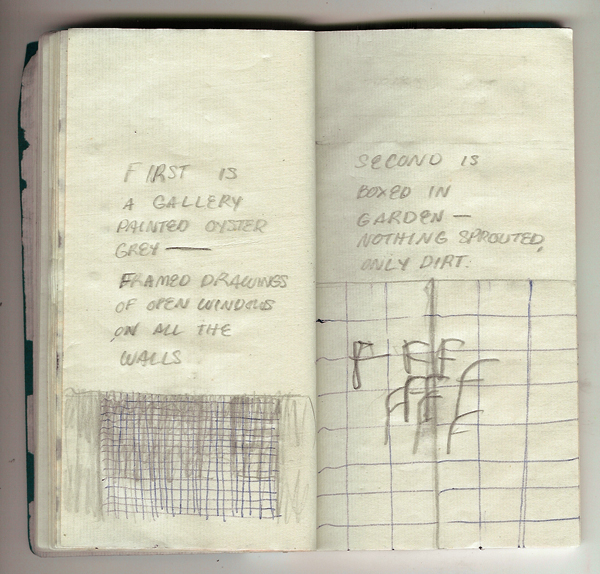 FIRST IS
A GALLERY
PAINTED OYSTER
GREY —
FRAMED DRAWINGS
OF OPEN WINDOWS
ON ALL THE
WALLS
SECOND IS
BOXED IN
GARDEN —
NOTHING SPROUTED,
ONLY DIRT.